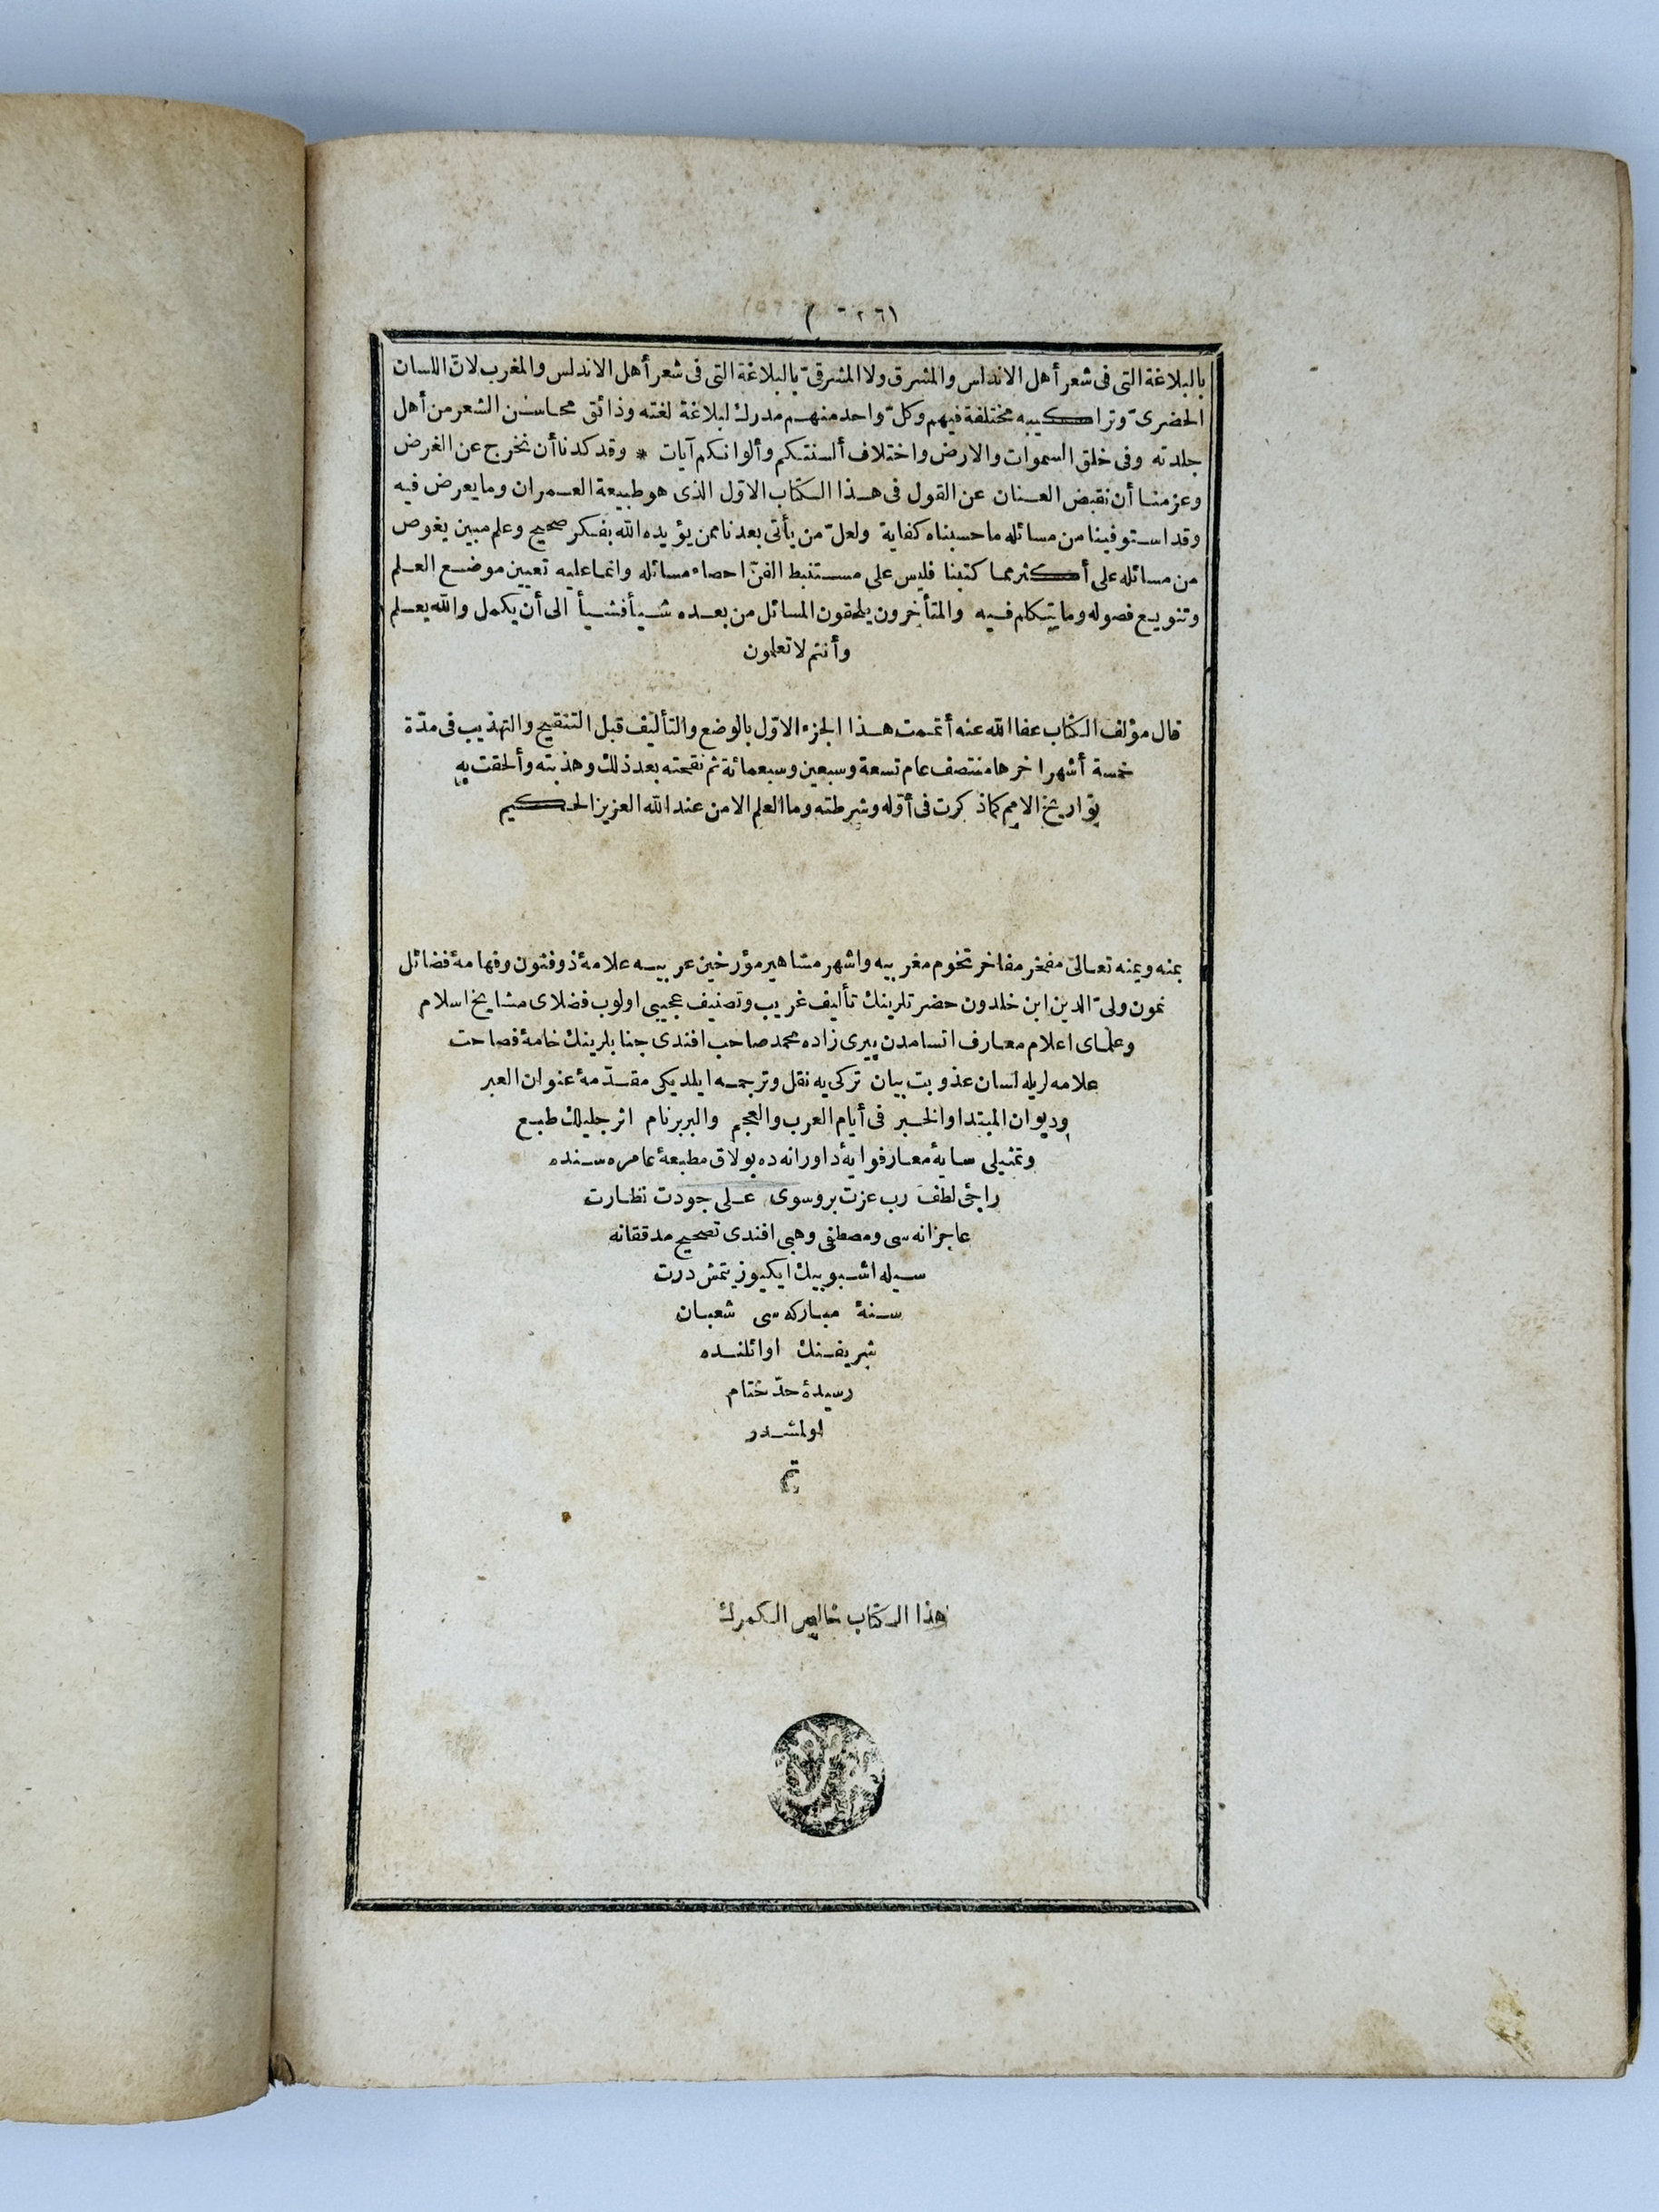 بالبلاغة التى فى شعر أهل الاندلس والمشرق ولا المشرقىّ بالبلاغة التى فى شعر أهل الاندلس والمغرب لانّ اللسان
الحضرىّ وتراكيبه مختلفة فيهم وكلّ واحد منهم مدرك لبلاغة لغته وذائق محاسن الشعر من أهل
جلدته وفى خلق السموات والارض واختلاف ألسنتكم وألوانكم آيات * وقد كدنا أن نخرج عن الغرض
وعزمنا أن نقبض العنان عن القول فى هذا الكتاب الاوّل الذى هو طبيعة العمران وما يعرض فيه
وقد استوفينا من مسائله ما حسبناه كفاية ولعلّ من يأتى بعدنا ممن يؤيده الله بفكر صحيح وعلم مبين يغوص
من مسائله على أكثر مما كتبنا فليس على مستنبط الفنّ احصاء مسائله وانما عليه تعيين موضع العلم
وتنويع فصوله وما يتكلم فيه والمتأخرون يلحقون المسائل من بعده شيأ فشيأ الى أن يكمل والله يعلم
وأنتم لا تعلمون
قال مؤلف الكتاب عفا الله عنه أتممت هذا الجزء الاوّل بالوضع والتأليف قبل التنقيح والتهذيب فى مدّة
خمسة أشهر اخرها منتصف عام تسعة وسبعين وسبعمائة ثم نقحته بعد ذلك وهذبته وألحقت به
تواريخ الامم كما ذكرت فى أوّله وشرطته وما العلم الا من عند الله العزيز الحكيم
بمنه ويمنه تعالى مفخر مفاخر تخوم مغربيه واشهر مشاهير مؤرخين عربيه علامهٔ ذوفنون وفهامهٔ فضائل
نمون ولىّ الدين ابن خلدون حضرتلرينك تأليف غريب وتصنيف عجيبى اولوب فضلاى مشايخ اسلام
وعلماى اعلام معارف اتسامدن پيرى زاده محمد صاحب افندى جنابلرينك خامهٔ فصاحت
علامه لريله لسان عذوبت بيان تركى يه نقل وترجمه ايلديكى مقدّمهٔ عنوان العبر
وديوان المبتدا والخبر فى أيام العرب والعجم والبربر نام اثر جليلك طبع
وتمثيلى سايهٔ معارفوايهٔ داورانه ده بولاق مطبعهٔ عامره سنده
راجئ لطف رب عزت بروسوى على جودت نظارت
عاجزانه سى ومصطفى وهبى افندى تصحيح مدققانه
سيله اشبو بيك ايكيوز يتمش درت
سنهٔ مباركه سى شعبان
شريفنك اوائلنده
رسيدهٔ حدّ ختام
اولمشدر
تم
هذا الكتاب خالص الكمرك